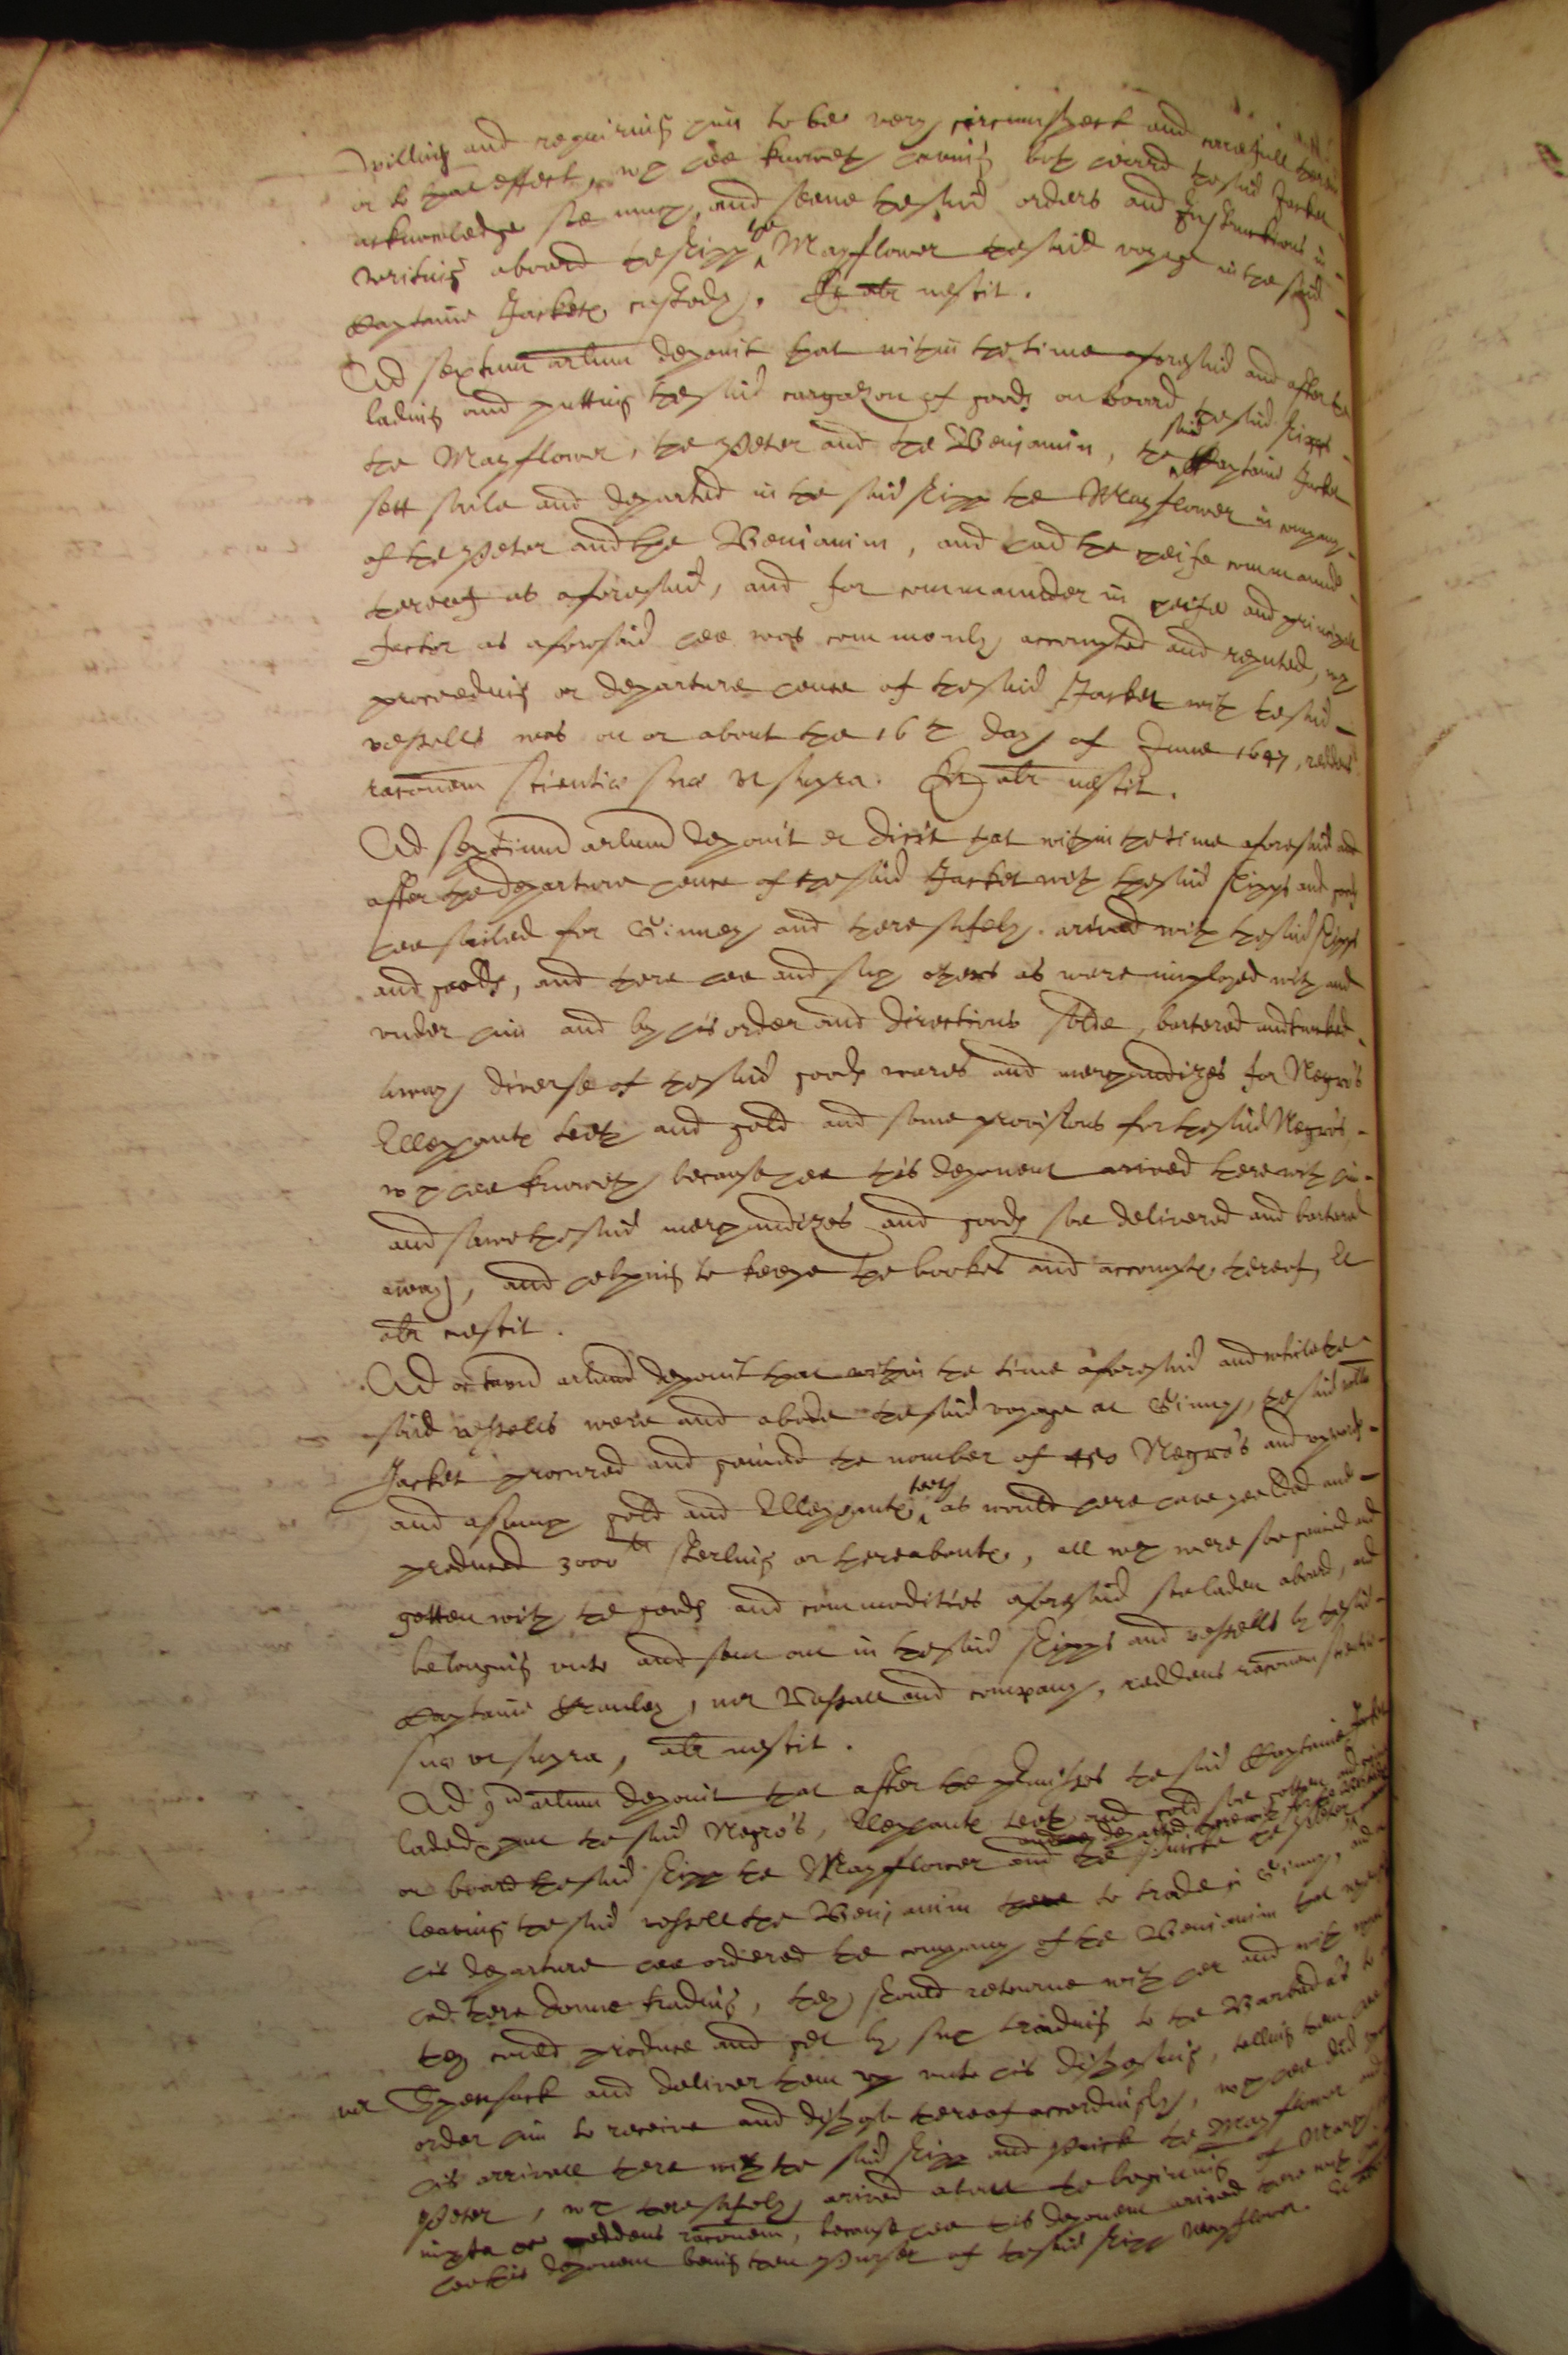 willing and requiring him to be very circumspect and carefull therein
or to that effect, wch hee knoweth having both heard the said Jacket
acknowledge soe much, and seene the said orders and Instructions in
writing aboard the shipp the Mayflower the said voyage in the said
Captaine Jackets custody. Et alr nescit.
Ad sextum arlum deponit that within the time aforesaid and after the
lading and putting the said cargazon of goods on board the said shipps
the Mayflower, the Peter and the Benjamin, the said Captaine Jacket
sett saile and departed in the said shipp the Mayflower in company
of the Peter and the Benjamin, and had the cheife commaund
thereof as aforesaid, and for commaunder in cheife and principall
factor as aforesaid hee was commonly accompted and reputed, wch
proceeding or departure hence of the said Jacket with the said
vessells was on or about the 16th day of June 1647, reddens
raconem scientiæ suæ ut supra. Et alr nescit.
Ad septimum arlum deponit et dicit that within the time aforesaid and
after the departure hence of the said Jacket with the said shipps and goods
hee sailed for Ginney and there safely arived with the said shipps
and goods, and there hee and such others as were imployed with and
under him and by his order and directions solde, bartered and trucked
away diverse of the said goods wares and merchandizes for Negro's
Ellephants teeth and gold and some provisions for the said Negro's,
wch hee knoweth because hee this deponent arived there with him
and sawe the said merchandizes and goods soe delivered and bartered
away, and helping to keepe the bookes and accompts thereof, Et
alr nescit.
Ad octavum arlum deponit that within the time aforesaid and while the
said vessells were and abode the said voyage at Ginney, the said
Jacket procured and gained the number of 450 Negro's and upwards
and asmuch gold and Ellephants teeth as would here have yeelded and
produced 3000 li sterling or thereabouts, all wch were soe gained and
gotten with the goods and commodities aforesaid soe laden aboard, and
belonging unto and sent out in the said shipps and vessells by the said
Captaine Crauley, mr Vassall and company, reddens raconem scientiæ
suæ ut supra, alr nescit.
Ad 9um arlum deponit that after the premisses the said Captaine Jacket
laded the said Negro's, Ellephants teeth and gold soe gotten and
on board the said shipp the Mayflower and the Pinke the Peter
and departed therewith for the Barbadas
leaving the said vessell the Benjamin there to trade in Ginney, and at
his departure hee ordered the company of the Benjamin that when they
had there donne trading, they should retourne with her and with what
they could produce and get by such trading to the Barbada's to
mr Spensack and deliver them up unto his disposing, telling them hee
order him to receive and dispose thereof accordingly, wch hee did
his arrivall there with the said shipp and Pinck the Mayflower and
Peter, wch there safely arived about the beginning of March
reddens raconem, because hee this deponent arived there with
hee this deponent being then Purser of the said shipp Mayflower. Et alr